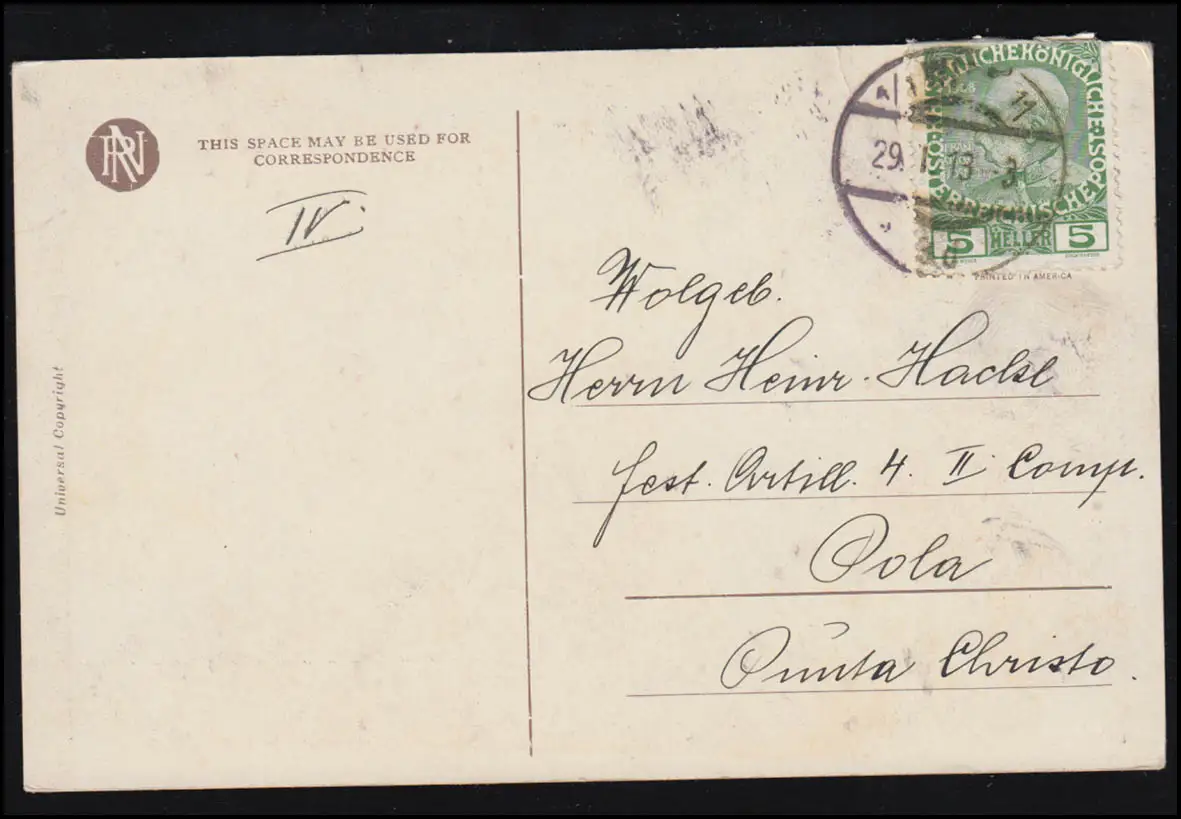 RN
THIS SPACE MAY BE USED FOR
CORRESPONDENCE
IV.
Universal Copyright
KAISERLICHEKÖNIGLICHE
ÖSTERREICHISCHEPOST
5 HELLER 5
29. 13
11
PRINTED IN AMERICA
Wolgeb.
Herrn Heinr. Hackl
fest. Artill. 4. II Comp.
Pola
Punta Christo.